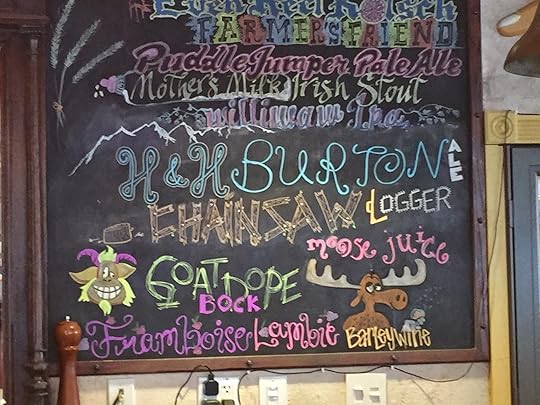 Even Keel Kolsch
FARMER'S FRIEND
Puddle Jumper Pale Ale
Mother's Milk Irish Stout
williwaw Ipa
H & H BURTON ALE
CHAINSAW LOGGER
moose juice
GOAT DOPE
BOCK
Framboise Lambic BarleyWine